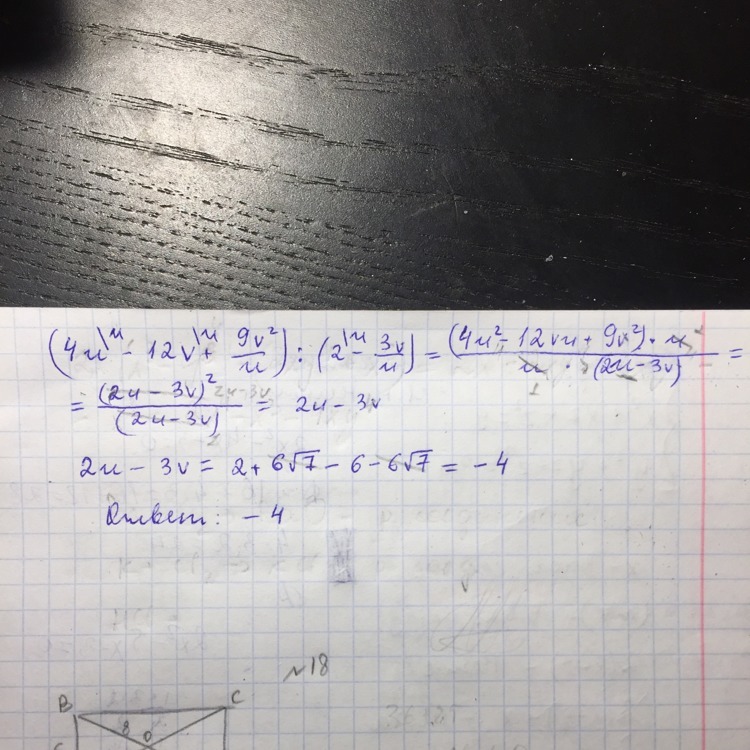 (4u\u - 12v\u + 9v²/u) : (2\u - 3v/u) = (4u² - 12vu + 9v²) · u / u · (2u - 3v) =
= (2u - 3v)² / (2u - 3v) 2u-3v = 2u - 3v
2u - 3v = 2 + 6√7 - 6 - 6√7 = -4
Ответ: -4
№18
B C
8 O